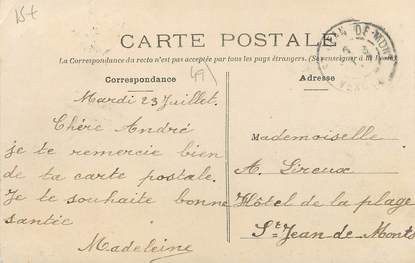 15+
CARTE POSTALE
La Correspondance du recto n'est pas acceptée par tous les pays étrangers. (Se renseigner à la Poste)
Correspondance
Adresse
49
Mardi 23 Juillet.
Chère André
je te remercie bien
de ta carte postale.
Je te souhaite bonne
santie
Madeleine
Mademoiselle
A. Sireux
Hôtel de la plage
St Jean de Monts
JEAN-DE-MONTS